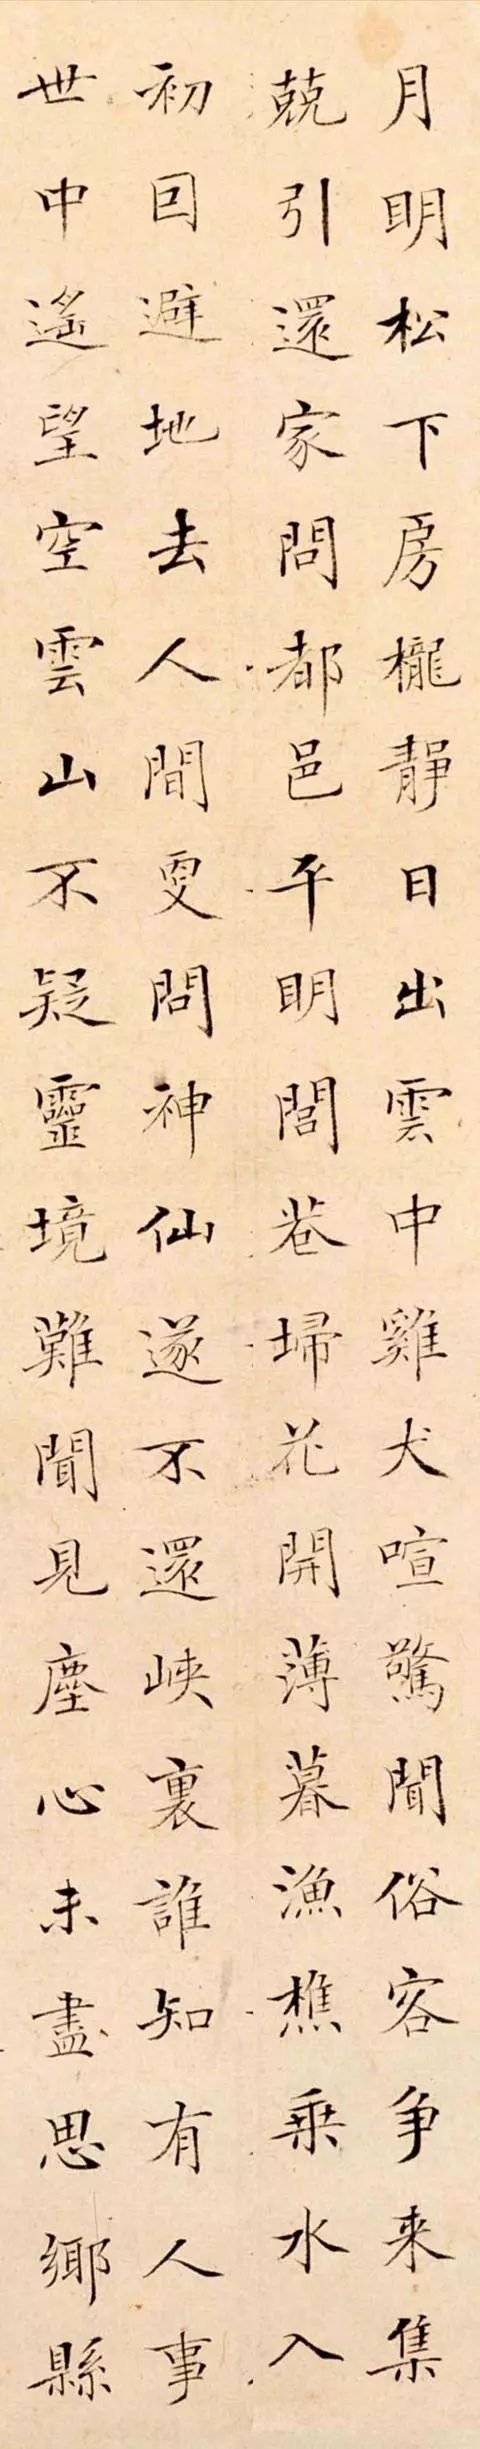 月明松下房櫳靜日出雲中雞犬喧驚聞俗客争来集
兢引還家問都邑平明閭巷埽花開薄暮漁樵乗水入
初回避地去人間更問神仙遂不還峽裏誰知有人事
世中遙望空雲山不疑靈境難聞見塵心未盡思鄉縣